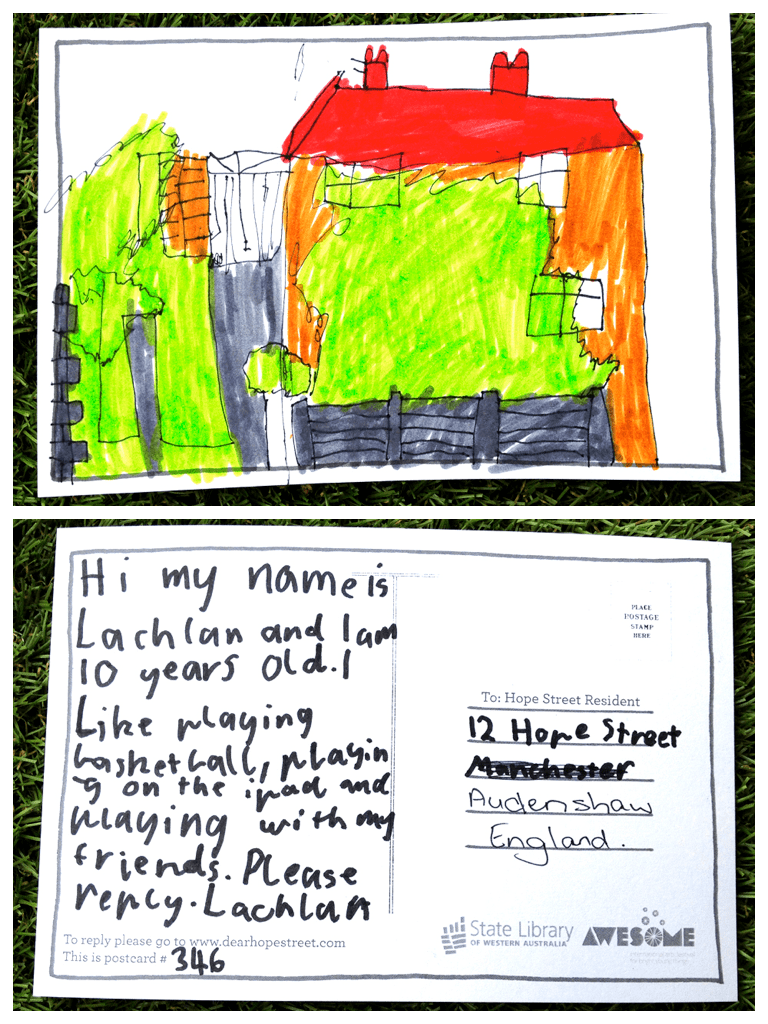 Hi my name is
Lachlan and I am
10 years old. I
Like playing
basketball, playin
g on the ipad and
playing with my
friends. Please
reply. Lachlan
To reply please go to www.dearhopestreet.com
This is postcard # 346
PLACE
POSTAGE
STAMP
HERE
To: Hope Street Resident
12 Hope Street
Manchester
Audenshaw
England.
State Library
OF WESTERN AUSTRALIA
AWESOME